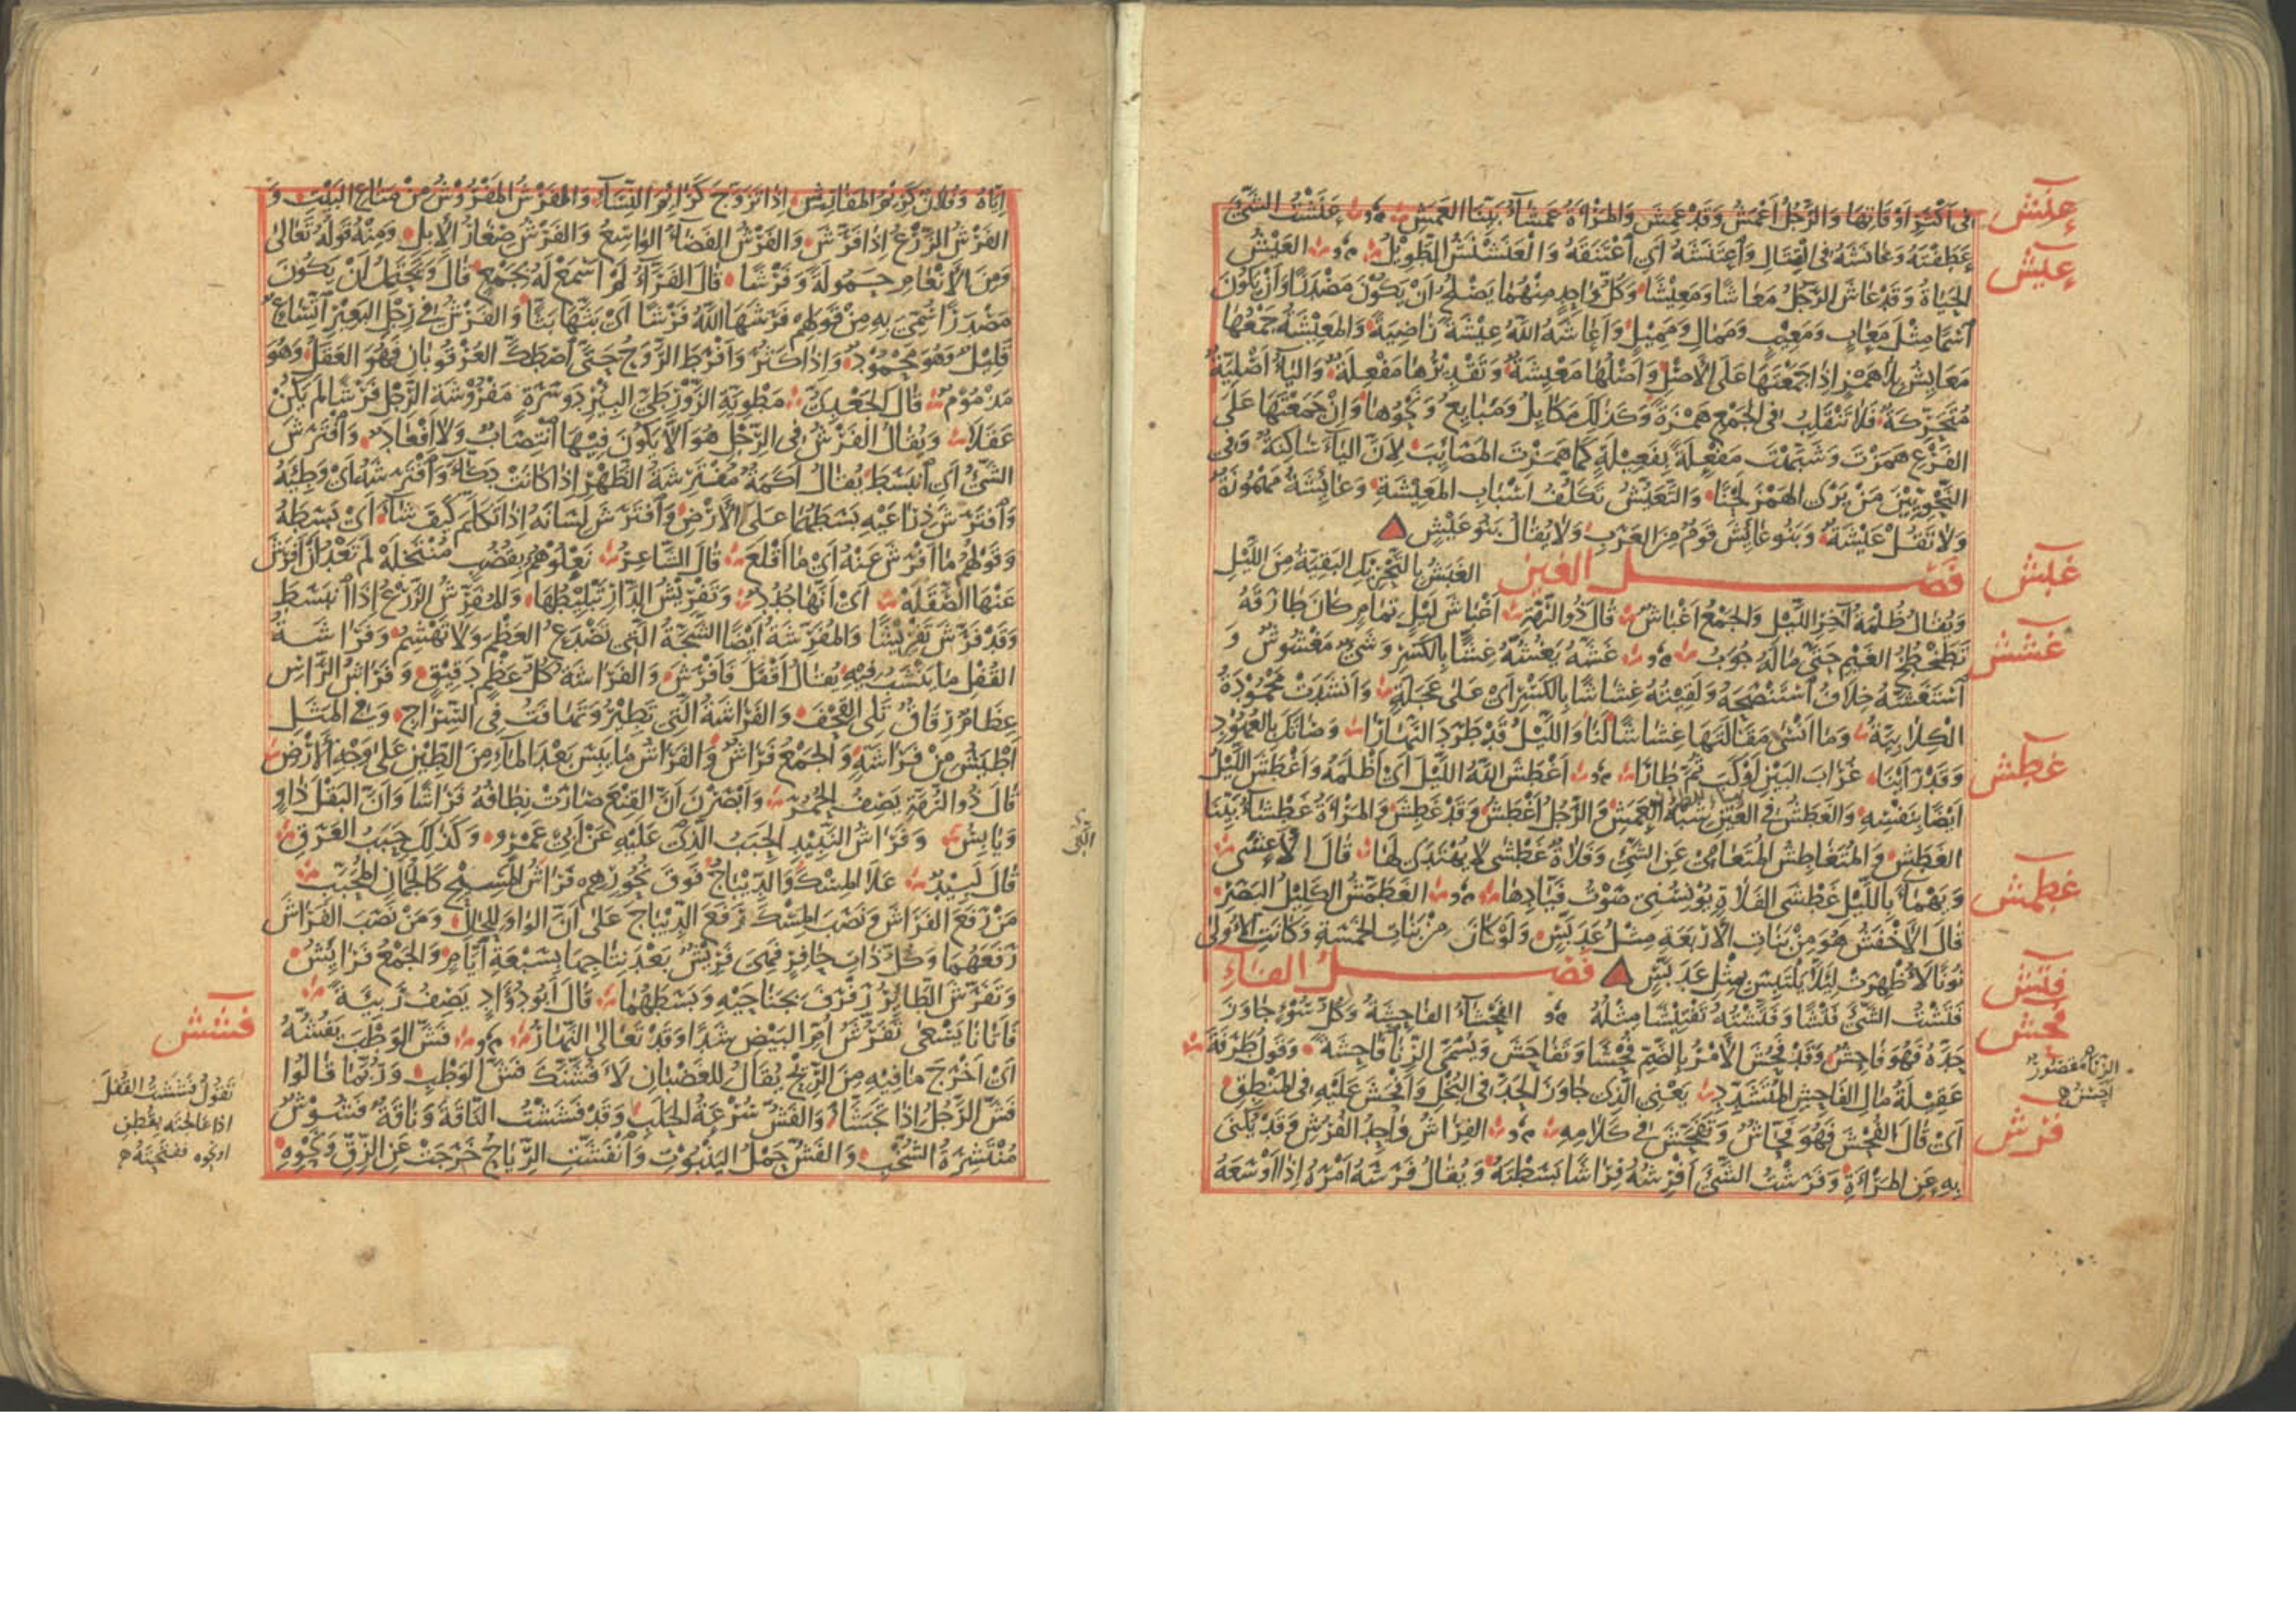 فى أَكْثَرِ أَوْقَاتِهَا وَالرَّجُلُ أَعْمَشُ وَقَدْ عَمِشَ وَالمَرْأَةُ عَمْشَآءُ بَيِّنَا العَمَشِ عَنَشْتُ الشَّيْءَ
عنش
عَطَفْتَهُ وَعَانَشَهُ فى القِتَالِ وَاعْتَنَشَهُ أى اعْتَنَقَهُ وَالعَنَشْنَشُ الطَّوِيلُ العَيْشُ
عيش
الحَيَاةُ وَقَدْ عَاشَ الرَّجُلُ مَعَاشًا وَمَعِيشًا وَكُلُّ وَاحِدٍ مِنْهُمَا يَصْلُحُ أَنْ يَكُونَ مَصْدَرًا وَأَنْ يَكُونَ
اسْمًا مِثْلَ مَعَابٍ وَمَعِيبٍ وَمَمَالٍ وَمَمِيلٍ وَأَعَاشَهُ اللّٰهُ عِيشَةً رَاضِيَةً وَالمَعِيشَةُ جَمْعُهَا
مَعَايِشُ بِلَا هَمْزٍ إِذَا جَمَعْتَهَا عَلَى الأَصْلِ وَأَصْلُهَا مَعْيِشَةٌ وَتَقْدِيرُهَا مَفْعِلَةٌ وَاليَآءُ أَصْلِيَّةٌ
مُتَحَرِّكَةٌ فَلَا تَنْقَلِبُ فى الجَمْعِ هَمْزَةً وَكَذٰلِكَ مَكَايِلُ وَمَبَايِعُ وَنَحْوُهَا وَإِنْ جَمَعْتَهَا عَلَى
الفَرْعِ هَمَزْتَ وَشَبَّهْتَ مَفْعِلَةً بِفَعِيلَةٍ كَمَا هَمَزْتَ المَصَائِبَ لِأَنَّ اليَآءَ سَاكِنَةٌ وَفى
النَّحْوِيِّينَ مَنْ يَرَى الهَمْزَ لَحْنًا وَالتَّعَيُّشُ تَكَلُّفُ أَسْبَابِ المَعِيشَةِ وَعَائِشَةُ مَهْمُوزَةٌ
وَلَا تَقُلْ عَيْشَةُ وَبَنُو عَائِشَ قَوْمٌ مِنَ العَرَبِ وَلَا يُقَالُ بَنُو عَيْشٍ
غبش
فصل الغين الغَبَشُ بِالتَّحْرِيكِ البَقِيَّةُ مِنَ اللَّيْلِ
وَيُقَالُ ظُلْمَةُ آخِرِ اللَّيْلِ وَالجَمْعُ أَغْبَاشٌ قَالَ ذُو الرُّمَّةِ أَغْبَاشَ لَيْلٍ تَمَامٍ كَانَ طَارَقَهُ
غشش
تَطَخْطُخُ الغَيْمِ حَتَّى مَا لَهُ جُوَبُ غَشَّهُ يَغُشُّهُ غِشًّا بِالكَسْرِ وَشَىْءٌ مَغْشُوشٌ وَ
اسْتَغَشَّهُ خِلَافُ اسْتَنْصَحَهُ وَلَقِيتُهُ غِشَاشًا بِالكَسْرِ أى عَلَى عَجَلَةٍ وَأَنْشَدَتْ مَحْمُودَةُ
الكِلَابِيَّةُ وَمَا أَنْسَى مَقَالَتَهَا غِشَاشًا لَنَا وَاللَّيْلُ قَدْ طَرَدَ النَّهَارَا وَصَاتَكَ بِالعُهُودِ
غطش
وَقَدْ رَأَيْنَا غُرَابَ البَيْنِ أَوْكَبَ ثُمَّ طَارَا أَغْطَشَ اللّٰهُ اللَّيْلَ أى أَظْلَمَهُ وَأَغْطَشَ اللَّيْلُ
أَيْضًا بِنَفْسِهِ وَالغَطَشُ فى العَيْنِ شِبْهُ العَمَشِ وَالرَّجُلُ أَغْطَشُ وَقَدْ غَطِشَ وَالمَرْأَةُ غَطْشَآءُ بَيِّنَا
الغَطَشِ وَالمُتَغَاطِشُ المُتَعَامِى عَنِ الشَّىْءِ وَفَلَاةٌ غَطْشَى لَا يُهْتَدَى لَهَا قَالَ الأَعْشَى
غطمش
وَيَهْمَآءَ بِاللَّيْلِ غَطْشَى الفَلَاةِ يُؤْنِسُنِى صَوْتُ فَيَّادِهَا الغَطَمَّشُ الكَلِيلُ البَصَرِ
قَالَ الأَخْفَشُ هُوَ مِنْ بَنَاتِ الأَرْبَعَةِ مِثْلُ عَدَبَّسٍ وَلَوْ كَانَ مِنْ بَنَاتِ الخَمْسَةِ وَكَانَتِ الأُولَى
نُونًا لَأُظْهِرَتْ لِئَلَّا يَلْتَبِسَ بِمِثْلِ عَدَبَّسٍ فصل الفاء
فتش
فَتَشْتُ الشَّىْءَ فَتْشًا وَفَتَّشْتُهُ تَفْتِيشًا مِثْلُهُ الفَحْشَآءُ الفَاحِشَةُ وَكُلُّ سُوءٍ جَاوَزَ
فحش
حَدَّهُ فَهُوَ فَاحِشٌ وَقَدْ فَحُشَ الأَمْرُ بِالضَّمِّ فُحْشًا وَتَفَاحَشَ وَيُسَمَّى الزِّنَا فَاحِشَةً وَقَوْلُ طَرَفَةَ
عَقِيلَةُ مَالِ الفَاحِشِ المُتَشَدِّدِ يَعْنِى الَّذِى جَاوَزَ الحَدَّ فى البُخْلِ وَأَفْحَشَ عَلَيْهِ فى المَنْطِقِ
أى قَالَ الفُحْشَ فَهُوَ فَحَّاشٌ وَتَفَحَّشَ فى كَلَامِهِ الفِرَاشُ وَاحِدُ الفُرُشِ وَقَدْ يُكْنَى
فرش
بِهِ عَنِ المَرْأَةِ وَفَرَشْتُ الشَّىْءَ أَفْرُشُهُ فِرَاشًا بَسَطْتُهُ وَيُقَالُ فَرَشَهُ أَمْرَهُ إِذَا أَوْسَعَهُ
إِيَّاهُ وَفُلَانٌ كَرِيمُ المَفَارِشِ إِذَا تَزَوَّجَ كَرَائِمَ النِّسَآءِ وَالفَرْشُ المَفْرُوشُ مِنْ مَتَاعِ البَيْتِ وَ
الفَرْشُ الزَّرْعُ إِذَا فَرَّشَ وَالفَرْشُ الفَضَآءُ الوَاسِعُ وَالفَرْشُ صِغَارُ الإِبِلِ وَمِنْهُ قَوْلُهُ تَعَالَى
وَمِنَ الأَنْعَامِ حَمُولَةً وَفَرْشًا قَالَ الفَرَّآءُ لَمْ أَسْمَعْ لَهُ بِجَمْعٍ قَالَ وَيَحْتَمِلُ أَنْ يَكُونَ
مَصْدَرًا سُمِّىَ بِهِ مِنْ قَوْلِهِمْ فَرَشَهَا اللّٰهُ فَرْشًا أى بَثَّهَا بَثًّا وَالفَرْشُ فى رِجْلِ البَعِيرِ اتِّسَاعٌ
قَلِيلٌ وَهُوَ مَحْمُودٌ وَإِذَا كَثُرَ وَأَفْرَطَ الرَّوَحُ حَتَّى اصْطَكَّ العُرْقُوبَانِ فَهُوَ العَقَلُ وَهُوَ
مَذْمُومٌ قَالَ الجَعْدِىُّ مَطْوِيَّةُ الزَّوْرِ طَىَّ البِئْرِ دَوْسَرَةٍ مَفْرُوشَةُ الرِّجْلِ فَرْشًا لَمْ يَكُنْ
عَقَلَا وَيُقَالُ الفَرْشُ فى الرِّجْلِ هُوَ أَلَّا يَكُونَ فِيهَا انْتِصَابٌ وَلَا إِقْعَادٌ وَافْتَرَشَ
الشَّىْءُ أى انْبَسَطَ يُقَالُ أَكَمَةٌ مُفْتَرِشَةُ الظَّهْرِ إِذَا كَانَتْ دَكَّآءَ وَافْتَرَشَهُ أى وَطِئَهُ
وَافْتَرَشَ ذِرَاعَيْهِ بَسَطَهُمَا عَلَى الأَرْضِ وَافْتَرَشَ لِسَانَهُ إِذَا تَكَلَّمَ كَيْفَ شَآءَ أى بَسَطَهُ
وَقَوْلُهُمْ مَا أَفْرَشَ عَنْهُ أى مَا أَقْلَعَ قَالَ الشَّاعِرُ نَعْلُوهُمُ بِقُضُبٍ مُنْتَخَلَهْ لَمْ تَعْدُ أَنْ أَفْرَشَ
عَنْهَا الصَّقَلَهْ أى أَنَّهَا جُدُدٌ وَتَفْرِيشُ الدَّارِ تَبْلِيطُهَا وَالمُفَرِّشُ الزَّرْعُ إِذَا انْبَسَطَ
وَقَدْ فَرَّشَ تَفْرِيشًا وَالمُفَرِّشَةُ أَيْضًا الشَّجَّةُ الَّتِى تَصْدَعُ العَظْمَ وَلَا تَهْشِمُ وَفَرَاشَةُ
القُفْلِ مَا يَنْشَبُ فِيهِ يُقَالُ أَقْفَلَ فَأَفْرَشَ وَالفَرَاشَةُ كُلُّ عَظْمٍ دَقِيقٍ وَفَرَاشُ الرَّأْسِ
عِظَامٌ رِقَاقٌ تَلِى القِحْفَ وَالفَرَاشَةُ الَّتِى تَطِيرُ وَتَهَافَتُ فى السِّرَاجِ وَفى المَثَلِ
أَطْيَشُ مِنْ فَرَاشَةٍ وَالجَمْعُ فَرَاشٌ وَالفَرَاشُ مَا يَبِسَ بَعْدَ المَآءِ مِنَ الطِّينِ عَلَى وَجْهِ الأَرْضِ
قَالَ ذُو الرُّمَّةِ يَصِفُ الحُمُرَ وَأَبْصَرْنَ أَنَّ القِنْعَ صَارَتْ نِطَافُهُ فَرَاشًا وَأَنَّ البَقْلَ ذَاوٍ
وَيَابِسُ وَفَرَاشُ النَّبِيذِ الحَبَبُ الَّذِى عَلَيْهِ عَنْ أَبِى عَمْرٍو وَكَذٰلِكَ حَبَبُ العَرَقِ
قَالَ لَبِيدٌ عَلَا المِسْكَ وَالدِّيبَاجُ فَوْقَ نُحُورِهِمْ فَرَاشُ المَسِيحِ كَالجُمَانِ المُحَبَّبِ
مَنْ رَفَعَ الفَرَاشَ وَنَصَبَ المِسْكَ رَفَعَ الدِّيبَاجَ عَلَى أَنَّ الوَاوَ لِلْحَالِ وَمَنْ نَصَبَ الفَرَاشَ
رَفَعَهُمَا وَكُلُّ ذَاتِ حَافِرٍ فَهِىَ فَرِيشٌ بَعْدَ نِتَاجِهَا بِسَبْعَةِ أَيَّامٍ وَالجَمْعُ فَرَائِشُ
وَتَفَرَّشَ الطَّائِرُ رَفْرَفَ بِجَنَاحَيْهِ وَبَسَطَهُمَا قَالَ أَبُو دُوَادٍ يَصِفُ رَبِيئَةً
فَأَتَانَا يَسْعَى تَفَرُّشَ أُمِّ البَيْضِ شَدًّا وَقَدْ تَعَالَى النَّهَارُ فَشَّ الوَطْبَ يَفُشُّهُ
فشش
أى أَخْرَجَ مَا فِيهِ مِنَ الرِّيحِ يُقَالُ لِلغَضْبَانِ لَأَفُشَّنَّكَ فَشَّ الوَطْبِ وَرُبَّمَا قَالُوا
فَشَّ الرَّجُلُ إِذَا تَجَشَّأَ وَالفَشُّ سُرْعَةُ الحَلَبِ وَقَدْ فَشَشْتُ النَّاقَةَ وَنَاقَةٌ فَشُوشٌ
مُنْتَشِرَةُ الشُّخْبِ وَالفَشُّ حَمْلُ اليَنْبُوتِ وَانْفَشَّتِ الرِّيَاحُ خَرَجَتْ عَنِ الزِّقِّ وَنَحْوِهِ
تقول فششت القفل